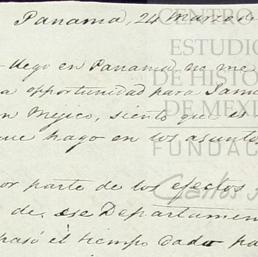 Panamá, 24 Marzo de
CENTRO
ESTUDIO
DE HISTO
DE MÉXI
FUNDAC
Carlos S
llego en Panama no me
a oportunidad para
en Mejico, siento que es
que hago en los asuntos
or parte de los efectos
de ese Departamen
pasó el tiempo dado pa